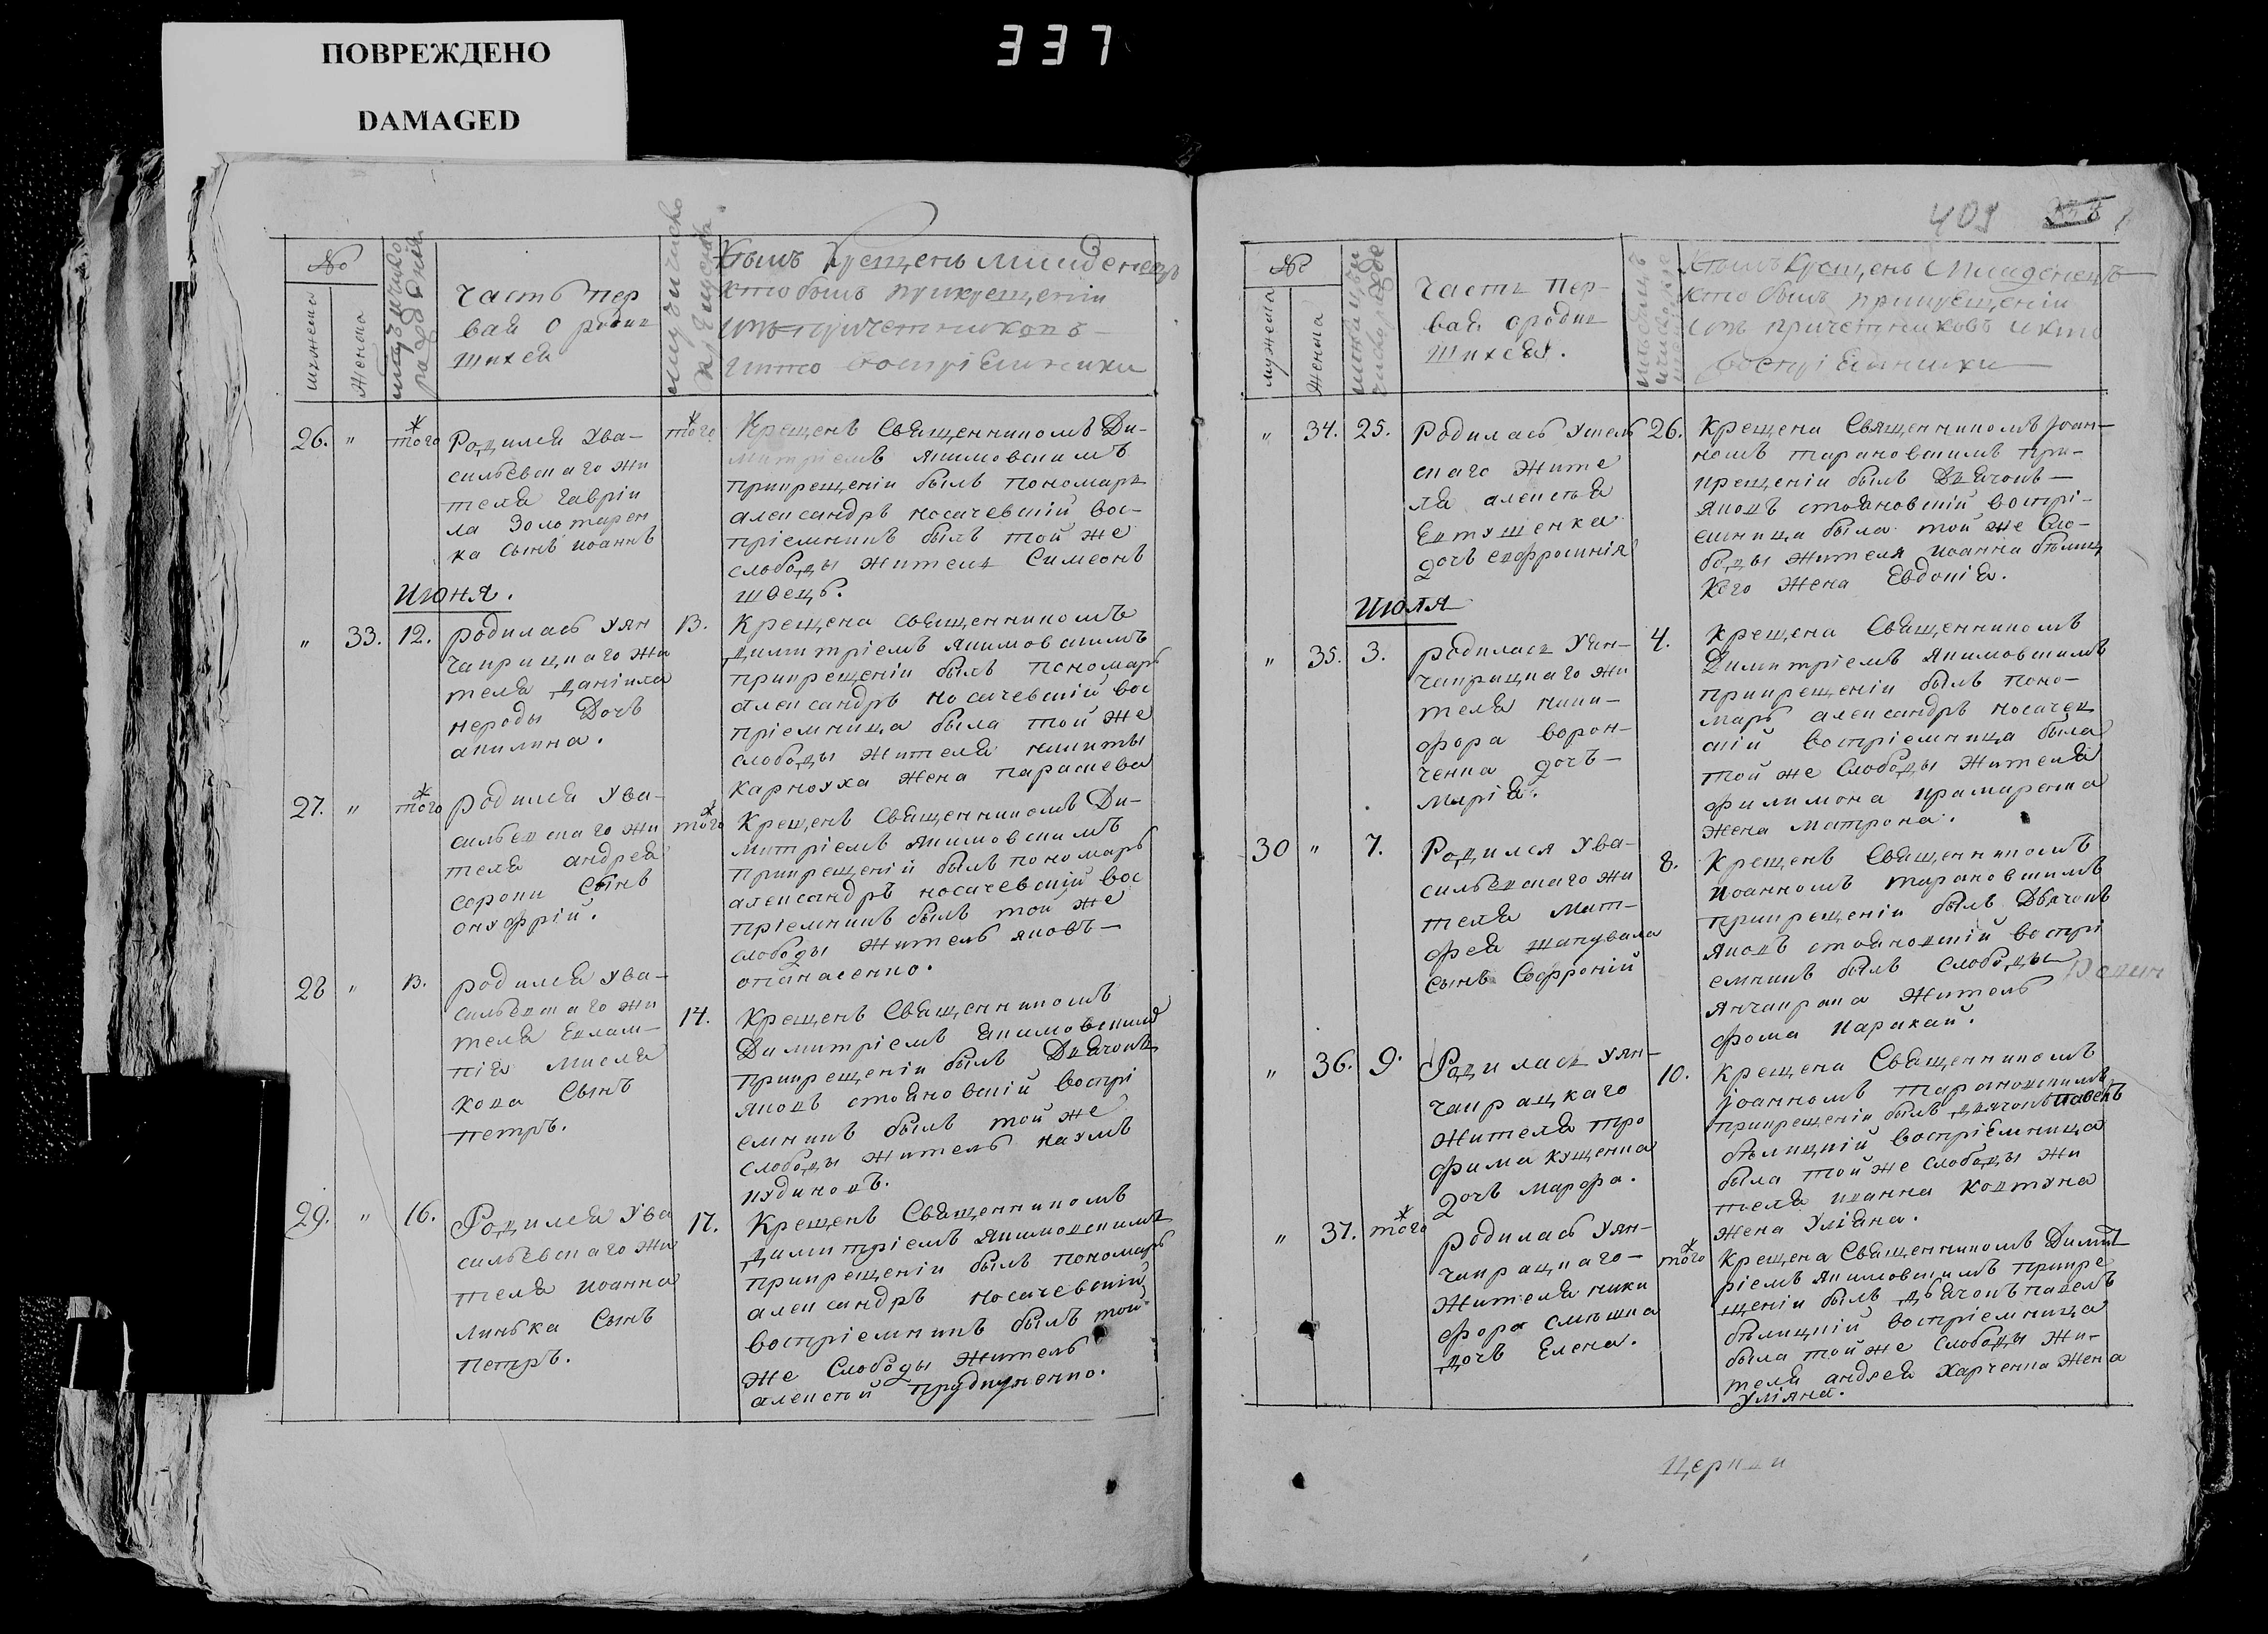 ПОВРЕЖДЕНО
DAMAGED
337
№
мужеска
женска
часть пер
вая о родив
шихся
Кѣмъ крещенъ младенецъ
кто былъ прикрещеніи
изъ причетниковъ
и кто воспріемники
26. " того Родился Ува-
сильевскаго жи
теля гавріи
ла Золотарен
ка сынъ иоаннъ
того Крещенъ Священникомъ Ди-
митріемъ якимовскимъ
прикрещеніи былъ пономарь
александръ носачевскій вос-
пріемникъ былъ той же
слободы житель Симеонъ
швецъ.
июня.
" 33. 12. родилась Уян
чакрицкаго жи
теля даніила
нероды дочь
акилина.
13. Крещена священникомъ
димитріемъ якимовскимъ
прикрещеніи былъ пономарь
александръ носачевскій вос
пріемница была той же
слободы жителя никиты
карноуха жена параскева
27. " того родился Ува-
сильевскаго жи
теля андрея
сороки сынъ
онуфрій.
того Крещенъ Священникомъ Ди-
митріемъ якимовскимъ
прикрещеніи былъ пономарь
александръ носачевскій вос
пріемникъ былъ той же
слободы житель яковъ
опанасенко.
28 " 13. родился Ува-
сильевскаго жи
теля Евлам-
пія мисля
кова Сынъ
петръ.
14. Крещенъ Священникомъ
Димитріемъ якимовскимъ
прикрещеніи былъ Дьячокъ
яковъ стояновскій воспрі
емникъ былъ той же
слободы житель наумъ
кудиновъ.
29. " 16. Родился Ува
сильевскаго жи
теля иоанна
линька Сынъ
петръ.
17. Крещенъ Священникомъ
димитріемъ якимовскимъ
прикрещеніи былъ пономарь
александръ носачевскій
воспріемникъ былъ той
же Слободы житель
алексѣй
409
№
мужеска
женска
часть пер-
вая ородив
шихся.
Кѣмъ крещенъ младенецъ
кто былъ прикрещеніи
изъ причетниковъ и кто
воспріемники
" 34. 25. Родилась
скаго жите
ля алексѣя
Евтушенка
дочь евфросинія
26. Крещена Священникомъ Іоан-
номъ тарановскимъ при-
крещеніи былъ Дьячокъ
яковъ стояновскій воспрі-
емница была той же Сло-
боды жителя иоанна бѣлиц
кого жена Евдокія.
июля
" 35. 3. родилась Уян-
чакрицкаго жи
теля ники-
фора ворон-
ченка дочь
марія.
4. Крещена Священникомъ
Димитріемъ якимовскимъ
прикрещеніи былъ поно-
марь александръ носачев
скій воспріемница была
той же Слободы жителя
филимона крамаренка
жена матрона.
30 " 7. Родился Ува-
сильевскаго жи
теля мат-
фея шаповала
сынъ Софроній
8. Крещенъ Священникомъ
иоанномъ тарановскимъ
прикрещеніи былъ Дьячокъ
яковъ стояновскій воспрі
емникъ былъ слободы
Янчакрака житель
фома каракай.
" 36. 9. Родилась Уян-
чакрацкаго
жителя тро
фима кущенка
дочь марфа.
10. Крещена Священникомъ
іоанномъ тарановскимъ
прикрещеніи былъ дьячокъ павелъ
бѣлицкій воспріемница
была той же слободы жи
теля иванна ковтуна
жена уліана.
" 37. того родилась Уян-
чакрацкаго
жителя ники
фора смѣшка
дочь Елена.
того Крещена Священникомъ Димит
ріемъ якимовскимъ прикре
щеніи былъ дьячокъ павелъ
бѣлицкій воспріемница
была той же слободы жи-
теля андрея Харченка жена
уліяна.
церкви